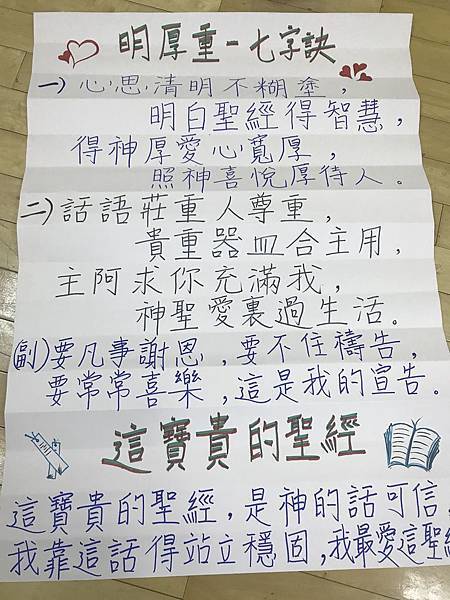 明厚重-七字訣
一)心思清明不糊塗，
明白聖經得智慧，
得神厚愛心寬厚，
照神喜悅厚待人。
二)話語莊重人尊重，
貴重器皿合主用，
主阿求你充滿我，
神聖愛裏過生活。
(副)要凡事謝恩，要不住禱告，
要常常喜樂，這是我的宣告。
這寶貴的聖經
這寶貴的聖經，是神的話可信，
我靠這話得站立穩固，我最愛這聖經